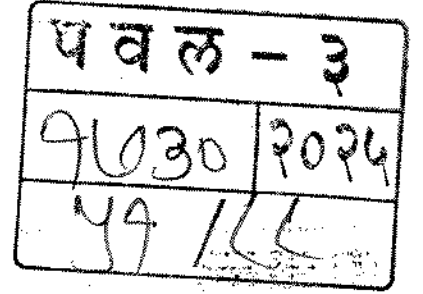 पवल - ३
१७३० २०२५
५१ / ८८